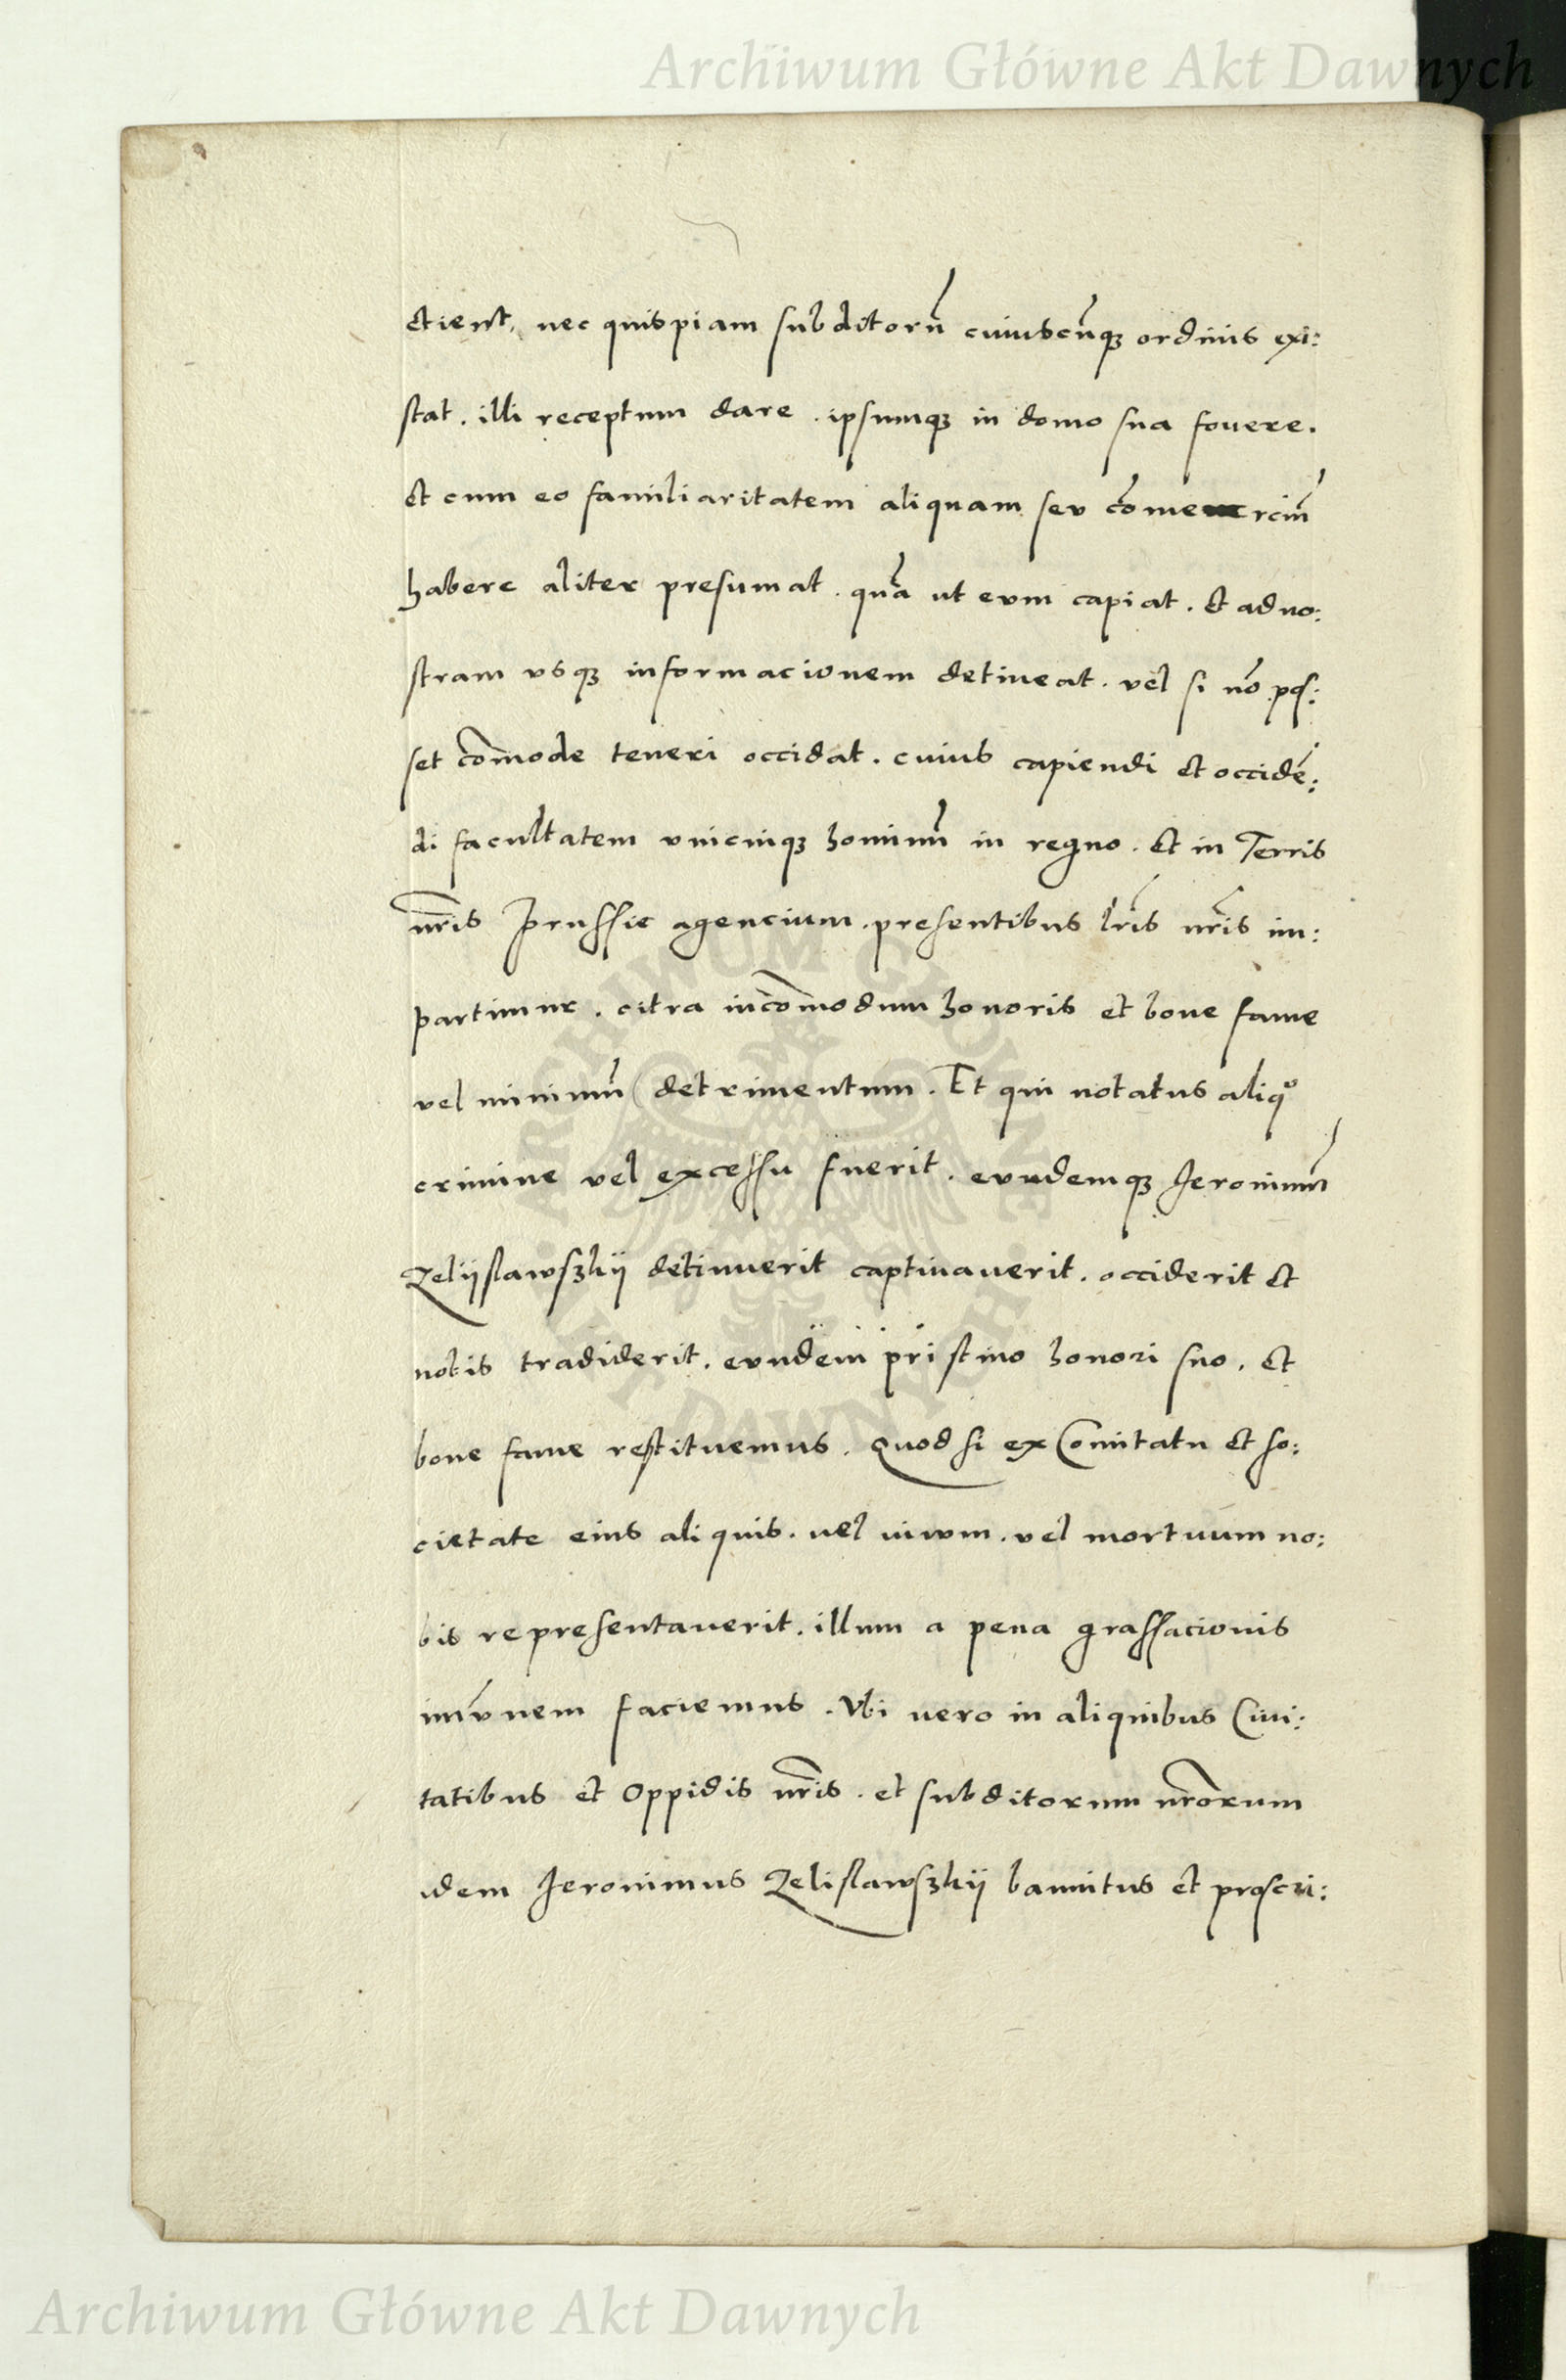 Archiwum Główne Akt Dawnych
ctient, nec quispiam subditorū cuiuscūq3 ordinis exi:
stat. illi receptum dare. ipsumq3 in domo sua fouere.
et cum eo familiaritatem aliquam seu cōmerciū
habere aliter presumat. quā ut eum capiat. et ad no:
stram usq3 informacionem detineat. vel si nō pos:
set cōmode teneri occidat. cuius capiendi et occidē:
di facultatem unicuiq3 hominū in regno. Et in Terris
nr̄is Prussie agencium. presentibus lr̄is nr̄is im:
partimur. citra incōmodum honoris et bone fame
vel minimū detrimentum. Et qui notatus aliqº
crimine vel excessu fuerit. eundemq3 Jeronimū
Zelijslawszkij detinuerit captiuauerit. occiderit et
nobis tradiderit. eundem pristino honori suo. et
bone fame restituemus. Quod si ex Comitatu et so:
cietate eius aliquis. uel uiuum. vel mortuum no:
bis representauerit. illum a pena grassacionis
imūnem faciemus. Vbi uero in aliquibus Ciui:
tatibus et Oppidis nr̄is. et subditorum nr̄orum
idem Jeronimus Zelislawszkij bannitus et proscri:
Archiwum Główne Akt Dawnych